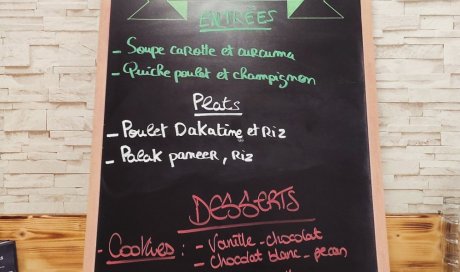 ENTRÉES
- Soupe carotte et curcuma
- Quiche poulet et champignon
Plats
- Poulet Dakatine et Riz
- Palak paneer, Riz
DESSERTS
- Cookies : - Vanille - chocolat
- Chocolat blanc - pecan